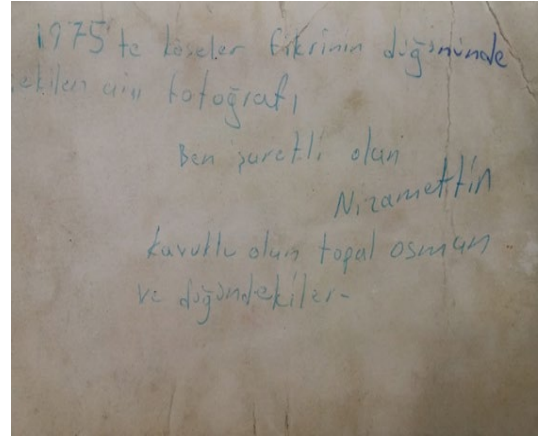 1975'te köseler fikrinin düğününde
çekilen anı fotoğrafı
Ben şuretli olan
Nizamettin
kavuklu olan topal osman
ve düğündekiler-